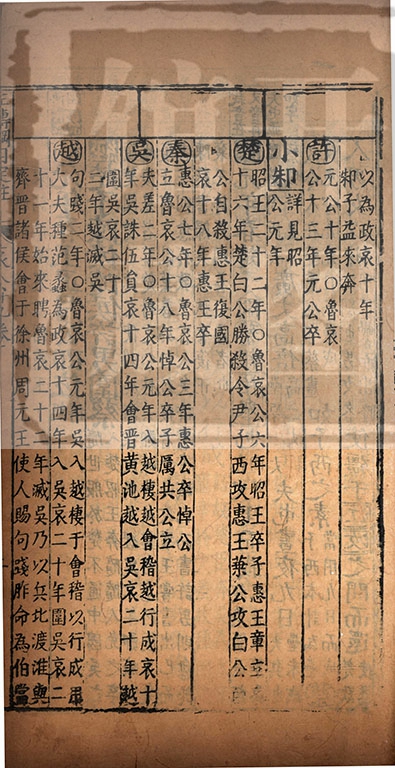 以為政哀十年
邾子益來奔
許 元公十年〇魯哀
公十三年元公卒
小邾 詳見昭
公元年
楚 昭王二十二年〇魯哀公六年昭王卒子惠王章立
十六年楚白公勝殺令尹子西攻惠王葉公攻白公
公自殺惠王復國
哀十八年惠王卒
秦 惠公七年〇魯哀公三年惠公卒悼公
立魯哀公十八年悼公卒子厲共公立
吳 夫差二年〇魯哀公元年入越棲越會稽越行成哀十
年吳誅伍員哀十四年會晋黄池越入吳哀二十年越
圍吳哀二十
二年越滅吳
越 句踐二年〇魯哀公元年吳入越棲于會稽以行成
大夫種范蠡為政哀十四年入吳哀二十年圍吳哀二
十一年始來聘魯哀二十二年滅吳乃以兵北渡淮與
齊晉諸侯會于徐州周元王使人賜句踐胙命為伯當